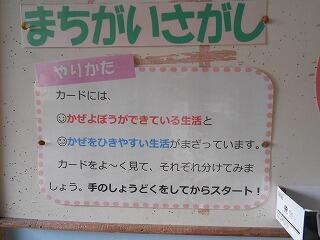 まちがいさがし
やりかた
カードには、
☺かぜよぼうができている生活と
☹かぜをひきやすい生活がまざっています。
カードをよ～く見て、それぞれ分けてみま
しょう。手のしょうどくをしてからスタート！